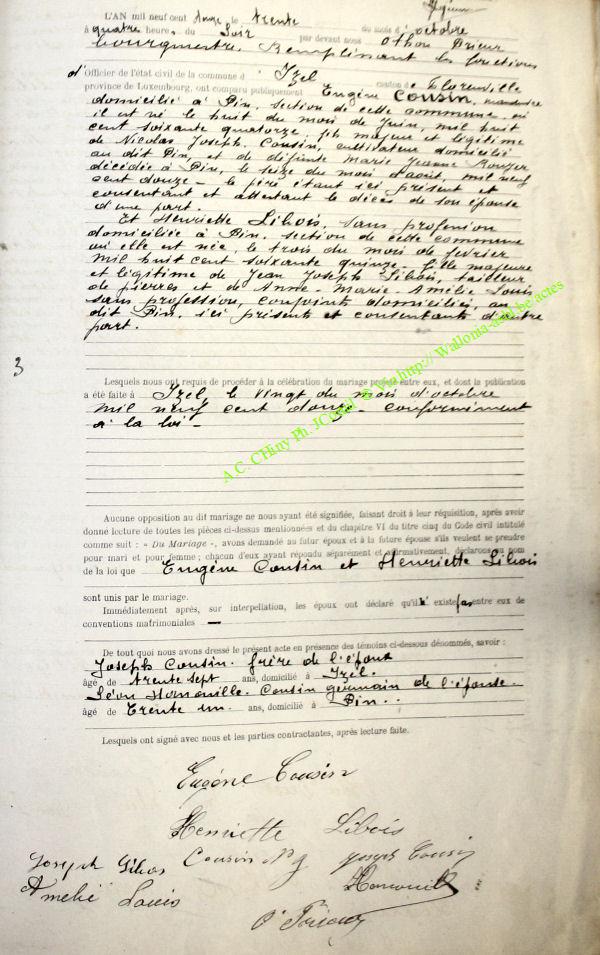 L'AN mil neuf cent onze, le trente du mois d'octobre
à quatre heures du Soir par devant nous Othon Prieur
bourgmestre. Remplissant les fonctions
d'Officier de l'état civil de la commune d' Izel canton de Florenville
province de Luxembourg, ont comparu publiquement Eugène Cousin, manœuvre
domicilié à Pin, section de cette commune, où
il est né le huit du mois de Juin, mil huit
cent soixante quatorze, fils majeur et légitime
de Nicolas Joseph Cousin, cultivateur domicilié
au dit Pin, et de défunte Marie Jeanne
décédée à Pin, le seize du mois d'août, mil neuf
cent douze - le père étant ici présent et
consentant et attestant le décès de son épouse
d'une part.
Et Henriette Libois, sans profession
domiciliée à Pin, section de cette commune
où elle est née, le trois du mois de février
mil huit cent soixante quinze - fille majeure
et légitime de Jean Joseph Libois, tailleur
de pierres et de Anne-Marie-Amélie Louis
sans profession, conjoints domiciliés, au
dit Pin, ici présents et consentants d'autre
part.
3
Lesquels nous ont requis de procéder à la célébration du mariage projeté entre eux, et dont la publication
a été faite à Izel, le vingt du mois d'octobre
mil neuf cent douze - conformément
à la loi -
A.C. CHiny Ph. JCorail @ Via http:// Wallonia-asbl.be.actes
Aucune opposition au dit mariage ne nous ayant été signifiée, faisant droit à leur réquisition, après avoir
donné lecture de toutes les pièces ci-dessus mentionnées et du chapitre VI du titre cinq du Code civil intitulé
comme suit : « Du Mariage », avons demandé au futur époux et à la future épouse s'ils veulent se prendre
pour mari et pour femme ; chacun d'eux ayant répondu séparément et affirmativement, déclarons au nom
de la loi que Eugène Cousin et Henriette Libois
sont unis par le mariage.
Immédiatement après, sur interpellation, les époux ont déclaré qu'il existe pas entre eux de
conventions matrimoniales —
De tout quoi nous avons dressé le présent acte en présence des témoins ci-dessous dénommés, savoir :
Joseph Cousin. frère de l'époux
âgé de trente sept ans, domicilié à Izel.
Léon Cousin germain de l'épouse.
âgé de Trente un ans, domicilié à Pin.
Lesquels ont signé avec nous et les parties contractantes, après lecture faite.
Eugène Cousin
Henriette Libois
Joseph Libois Cousin N J Joseph Cousin
Amélie Louis
O. Prieur